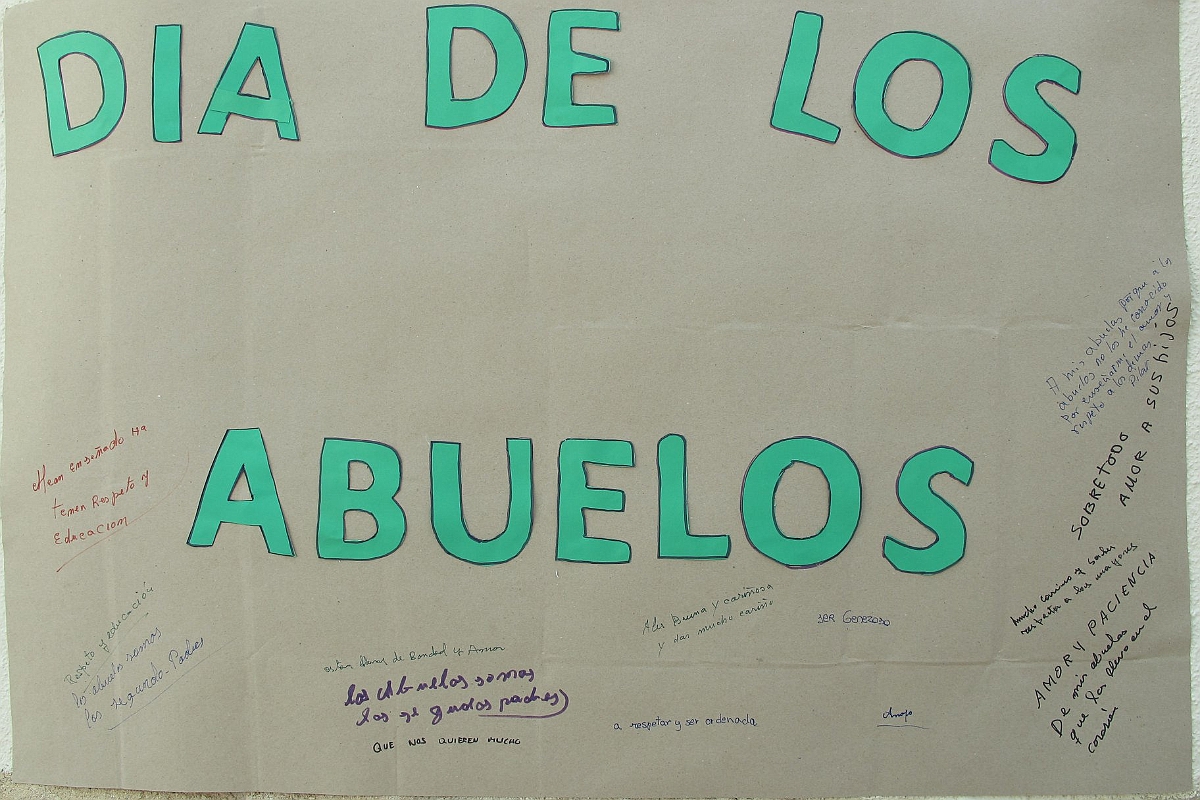 DIA DE LOS
ABUELOS
A mis abuelas porque a los
abuelos no los he conocido
por enseñarme el amor y
respeto a los demás
Pilar
SOBRETODO
AMOR A SUS HIJOS
Mean Enseñado Ha
temer Respeto y
Educacion
Respeto y educación
los abuelos somos
los segundo-Padres
Buena y cariñosa
y dar mucho cariño
SER Generoso
de Bondad y Amor
los Abuelos somos
los segundos padres
QUE NOS QUIEREN MUCHO
a respetar y ser ordenada
mucho carino y saber
respetar a los mayores
AMOR Y PACIENCIA
De mis abuelos
que los llevo en el
corazón